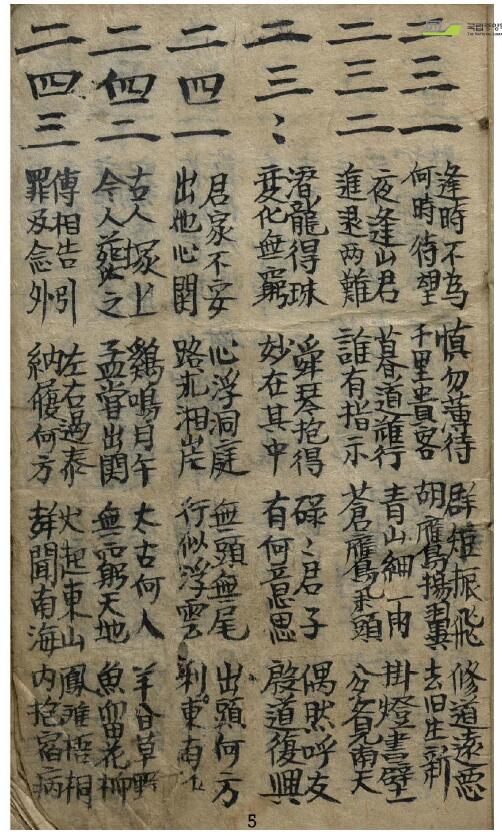 二三一
逢時不為 慎勿薄待 群短振飛 修道遠悪
何時待望 千里貴客 胡鴈揚翼 去旧生新
二三二
夜逢山君 暮道難行 青山細雨 掛燈書壁
進退両難 誰有指示 蒼鷹 頭 各見南天
二三〻
潜龍得珠 舜琴抱得 碌〻君子 偶然呼友
変化無窮 妙在其中 有何意思 殷道復興
二四一
君家不安 心浮洞庭 無頭無尾 出頭何方
出他心閑 路 湘岸 行似浮雲 利東南
二四二
古人塚上 鷄鳴月午 太古何人 羊食草野
今人葬之 孟嘗出関 無窮天地 魚留花柳
二四三
傳相告引 左右過泰 火起東山 鳳雛栖桐
罪及念外 納履何方 聲聞南海 内抱宿病
5